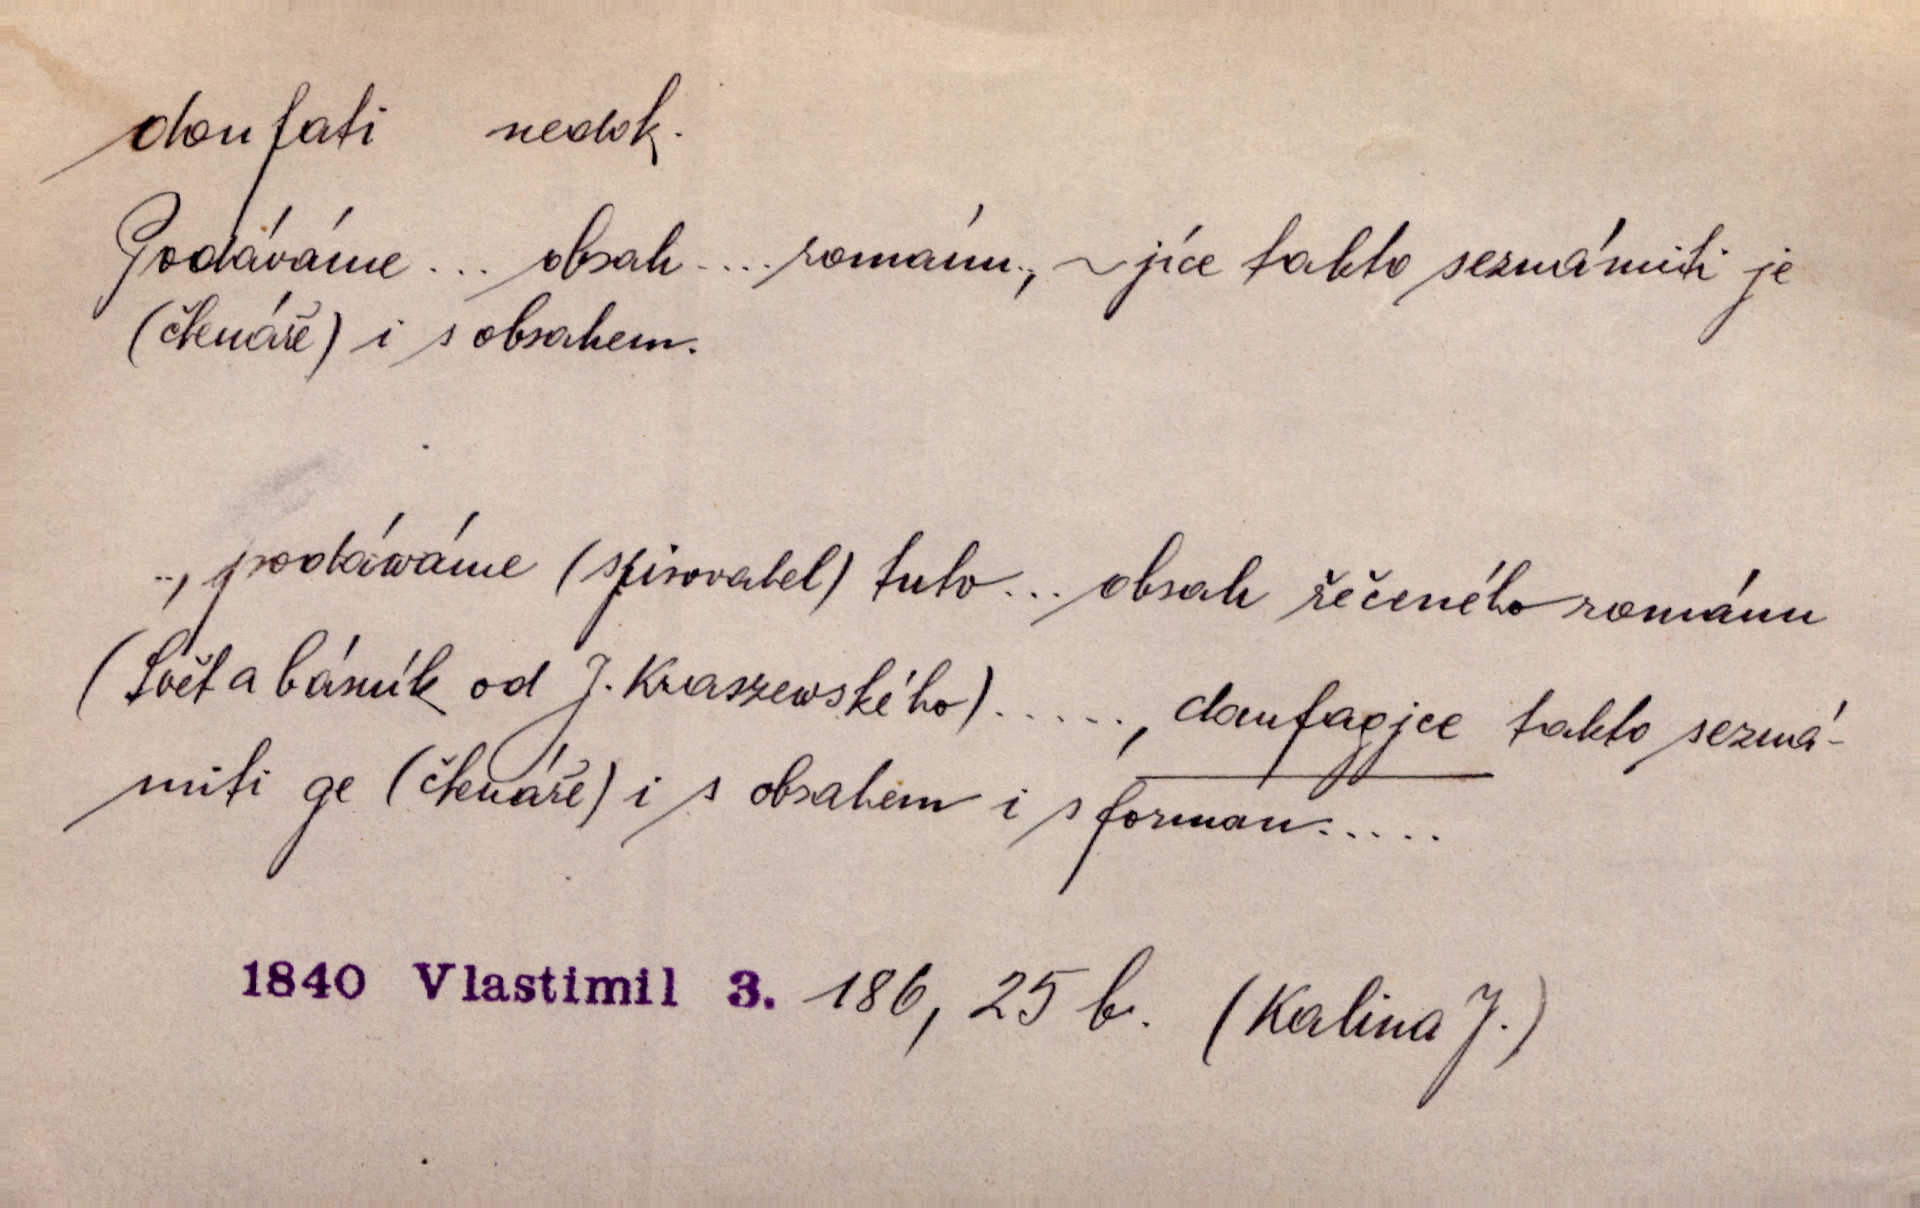 doufati nedok.
Podáváme ... obsah .... románu.., ~jíce takto seznámiti je
(čtenáře) i s obsahem.
.., podáwáme (spisovatel) tuto ... obsah řečeného románu
(Svět a básník od J. Kraszewského) ....., daufagjce takto sezná-
miti ge (čtenáře) i s obsahem i s formau.....
1840 Vlastimil 3. 186, 25 b. (Kalina J.)